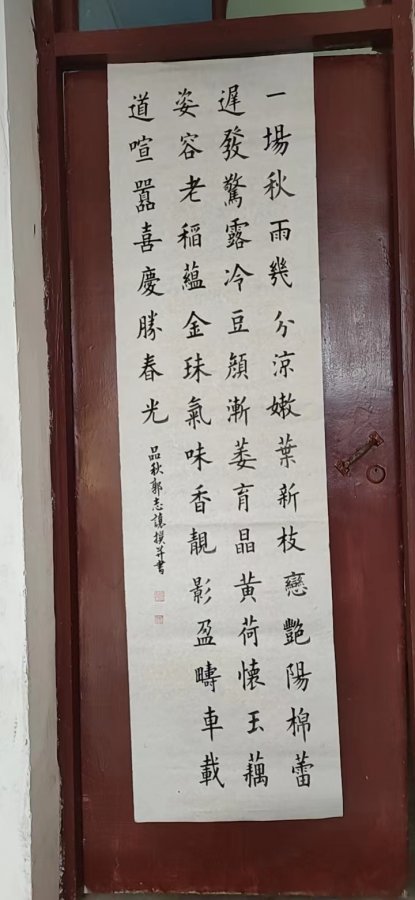 一場秋雨幾分涼嫩葉新枝戀艷陽棉蕾
遲發驚露冷豆顔漸萎育晶黄荷懷玉藕
姿容老稻蘊金珠氣味香靚影盈疇車載
道喧囂喜慶勝春光
品秋郭志讓撰并書